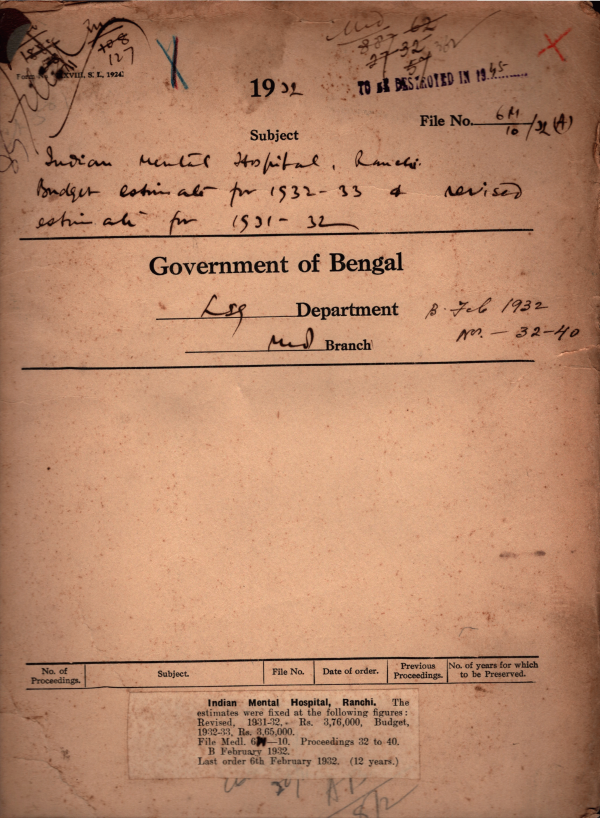 XVIII, S. L., 1924.
127
Med 62
27-32
57
1932
TO BE DESTROYED IN 1945
File No. 6M/10/32 (A)
Subject
Indian Mental Hospital, Ranchi.
Budget estimate for 1932-33 & revised
estimate for 1931-32
Government of Bengal
LSG Department
B. Feb 1932
Med Branch
Nos. - 32-40
No. of Proceedings. Subject. File No. Date of order. Previous Proceedings. No. of years for which to be Preserved.
Indian Mental Hospital, Ranchi. The
estimates were fixed at the following figures:
Revised, 1931-32. Rs. 3,76,000, Budget,
1932-33, Rs. 3,65,000.
File Medl. 6M—10. Proceedings 32 to 40.
B February 1932.
Last order 6th February 1932. (12 years.)